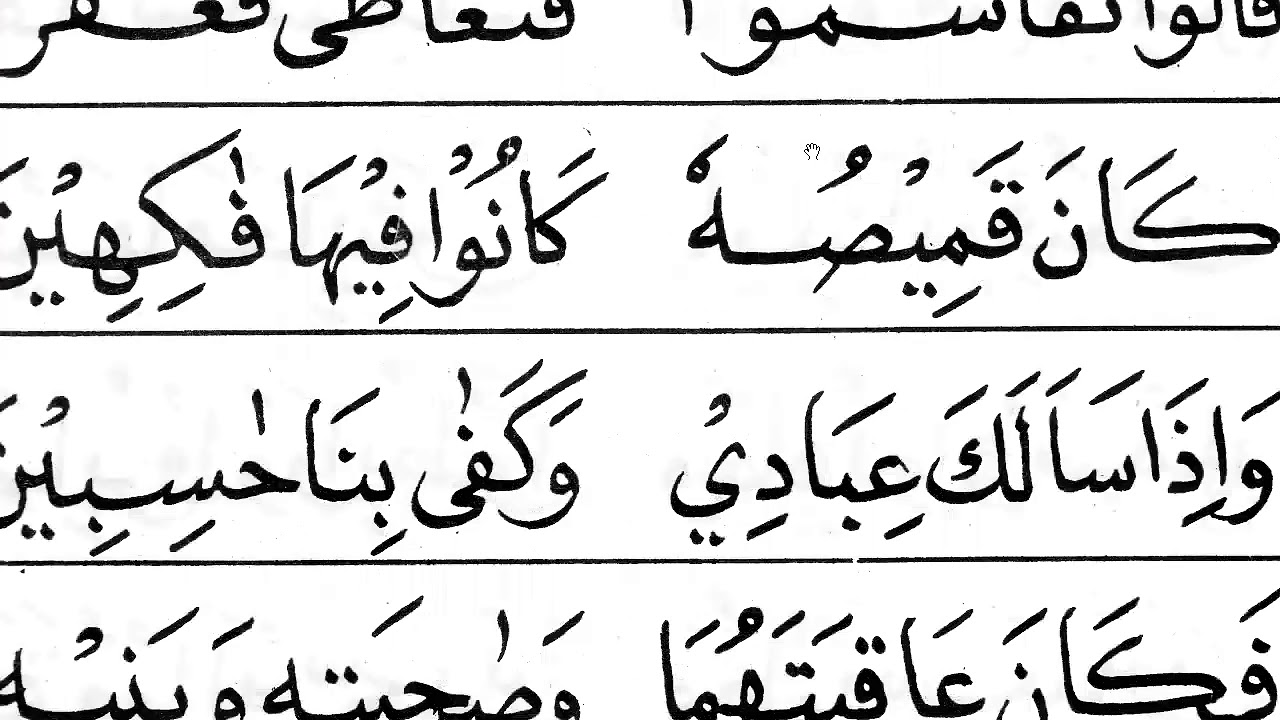 قَالُوا تَقَاسَمُوا فَتَعَاطٰى فَعَقَرَ
كَانَ قَمِيْصُهٗ كَانُوْا فِيْهَا فٰكِهِيْنَ
وَاِذَا سَاَلَكَ عِبَادِيْ وَكَفٰى بِنَا حٰسِبِيْنَ
فَكَانَ عَاقِبَتَهُمَا وَصٰحِبَتِهٖ وَبَنِيْهِ